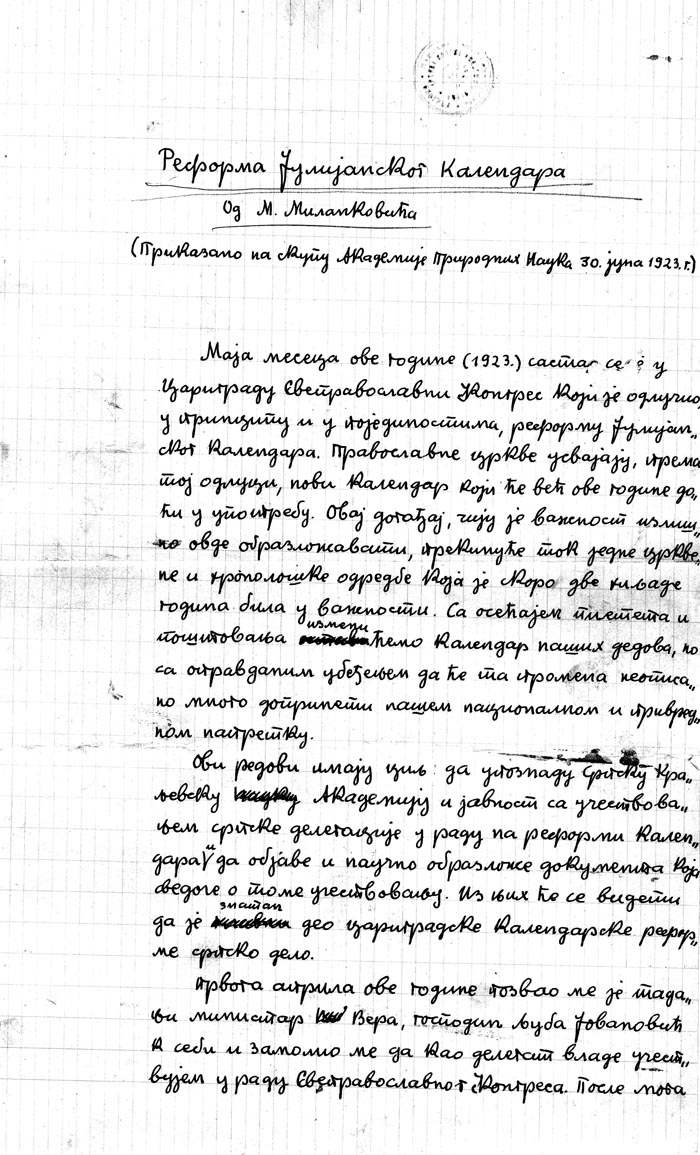 Реформа Јулијанског Календара
Од М. Миланковића
(Приказано на скупу Академије Природних Наука 30. јуна 1923. г.)
Маја месеца ове године (1923.) састао се је у
Цариграду Свеправославни Конгрес који је одлучио
у принципу и у појединостима, реформу Јулијан„
ског Календара. Православне цркве усвајају, према
тој одлуци, нови Календар који ће већ ове године до„
ћи у употребу. Овај догађај, чију је важност излиш„
но овде образложавати, прекинуће ток једне цркве„
не и хронолошке одредбе која је скоро две хиљаде
година била у важности. Са осећајем пијетета и
измени
поштовања ћемо Календар наших дедова, но
са оправданим убеђењем да ће та промена неописа„
но много допринети нашем националном и привред„
ном напретку.
Ови редови имају циљ: да упознаду Српску Кра„
љевску Академију и јавност са учествова„
њем српске делегације у раду на реформи Кален„
дара и да објаве и научно образложе документа која
сведоче о томе учествовању. Из њих ће се видети
знатан
да је део цариградске Календарске рефор„
ме српско дело.
Првога априла ове године позвао ме је тада„
њи министар Вера, господин Љуба Јовановић
к себи и замолио ме да као делегат владе учест„
вујем у раду Свеправославног Конгреса. После мога